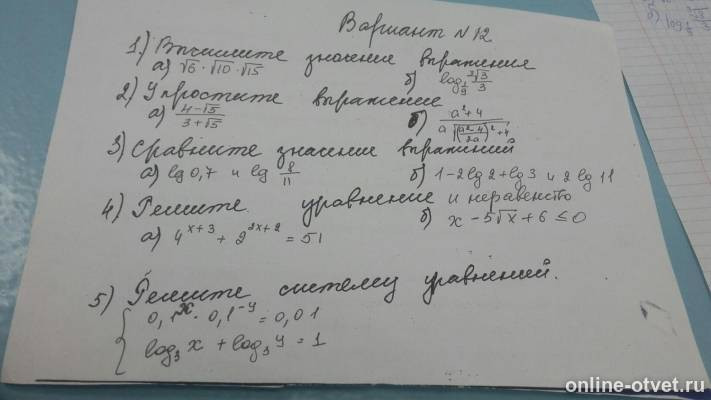 Вариант N 12
1.) Вычислите значение выражения
а) √6 · √10 · √15 б) log_{1/9} ∛3/3
2) Упростите выражение
а) (4-√5)/(3+√5) б) (a²+4)/(a√(((a²-4)/(2a))²+4))
3) Сравните значение выражений
а) lg 0,7 и lg 8/11 б) 1-2lg2+lg3 и 2lg11
4) Решите уравнение и неравенство
а) 4^{x+3} + 2^{2x+2} = 51 б) x - 5√x + 6 ≤ 0
5) Решите систему уравнений.
{ 0,1^x · 0,1^{-y} = 0,01
log₃ x + log₃ y = 1
online-otvet.ru